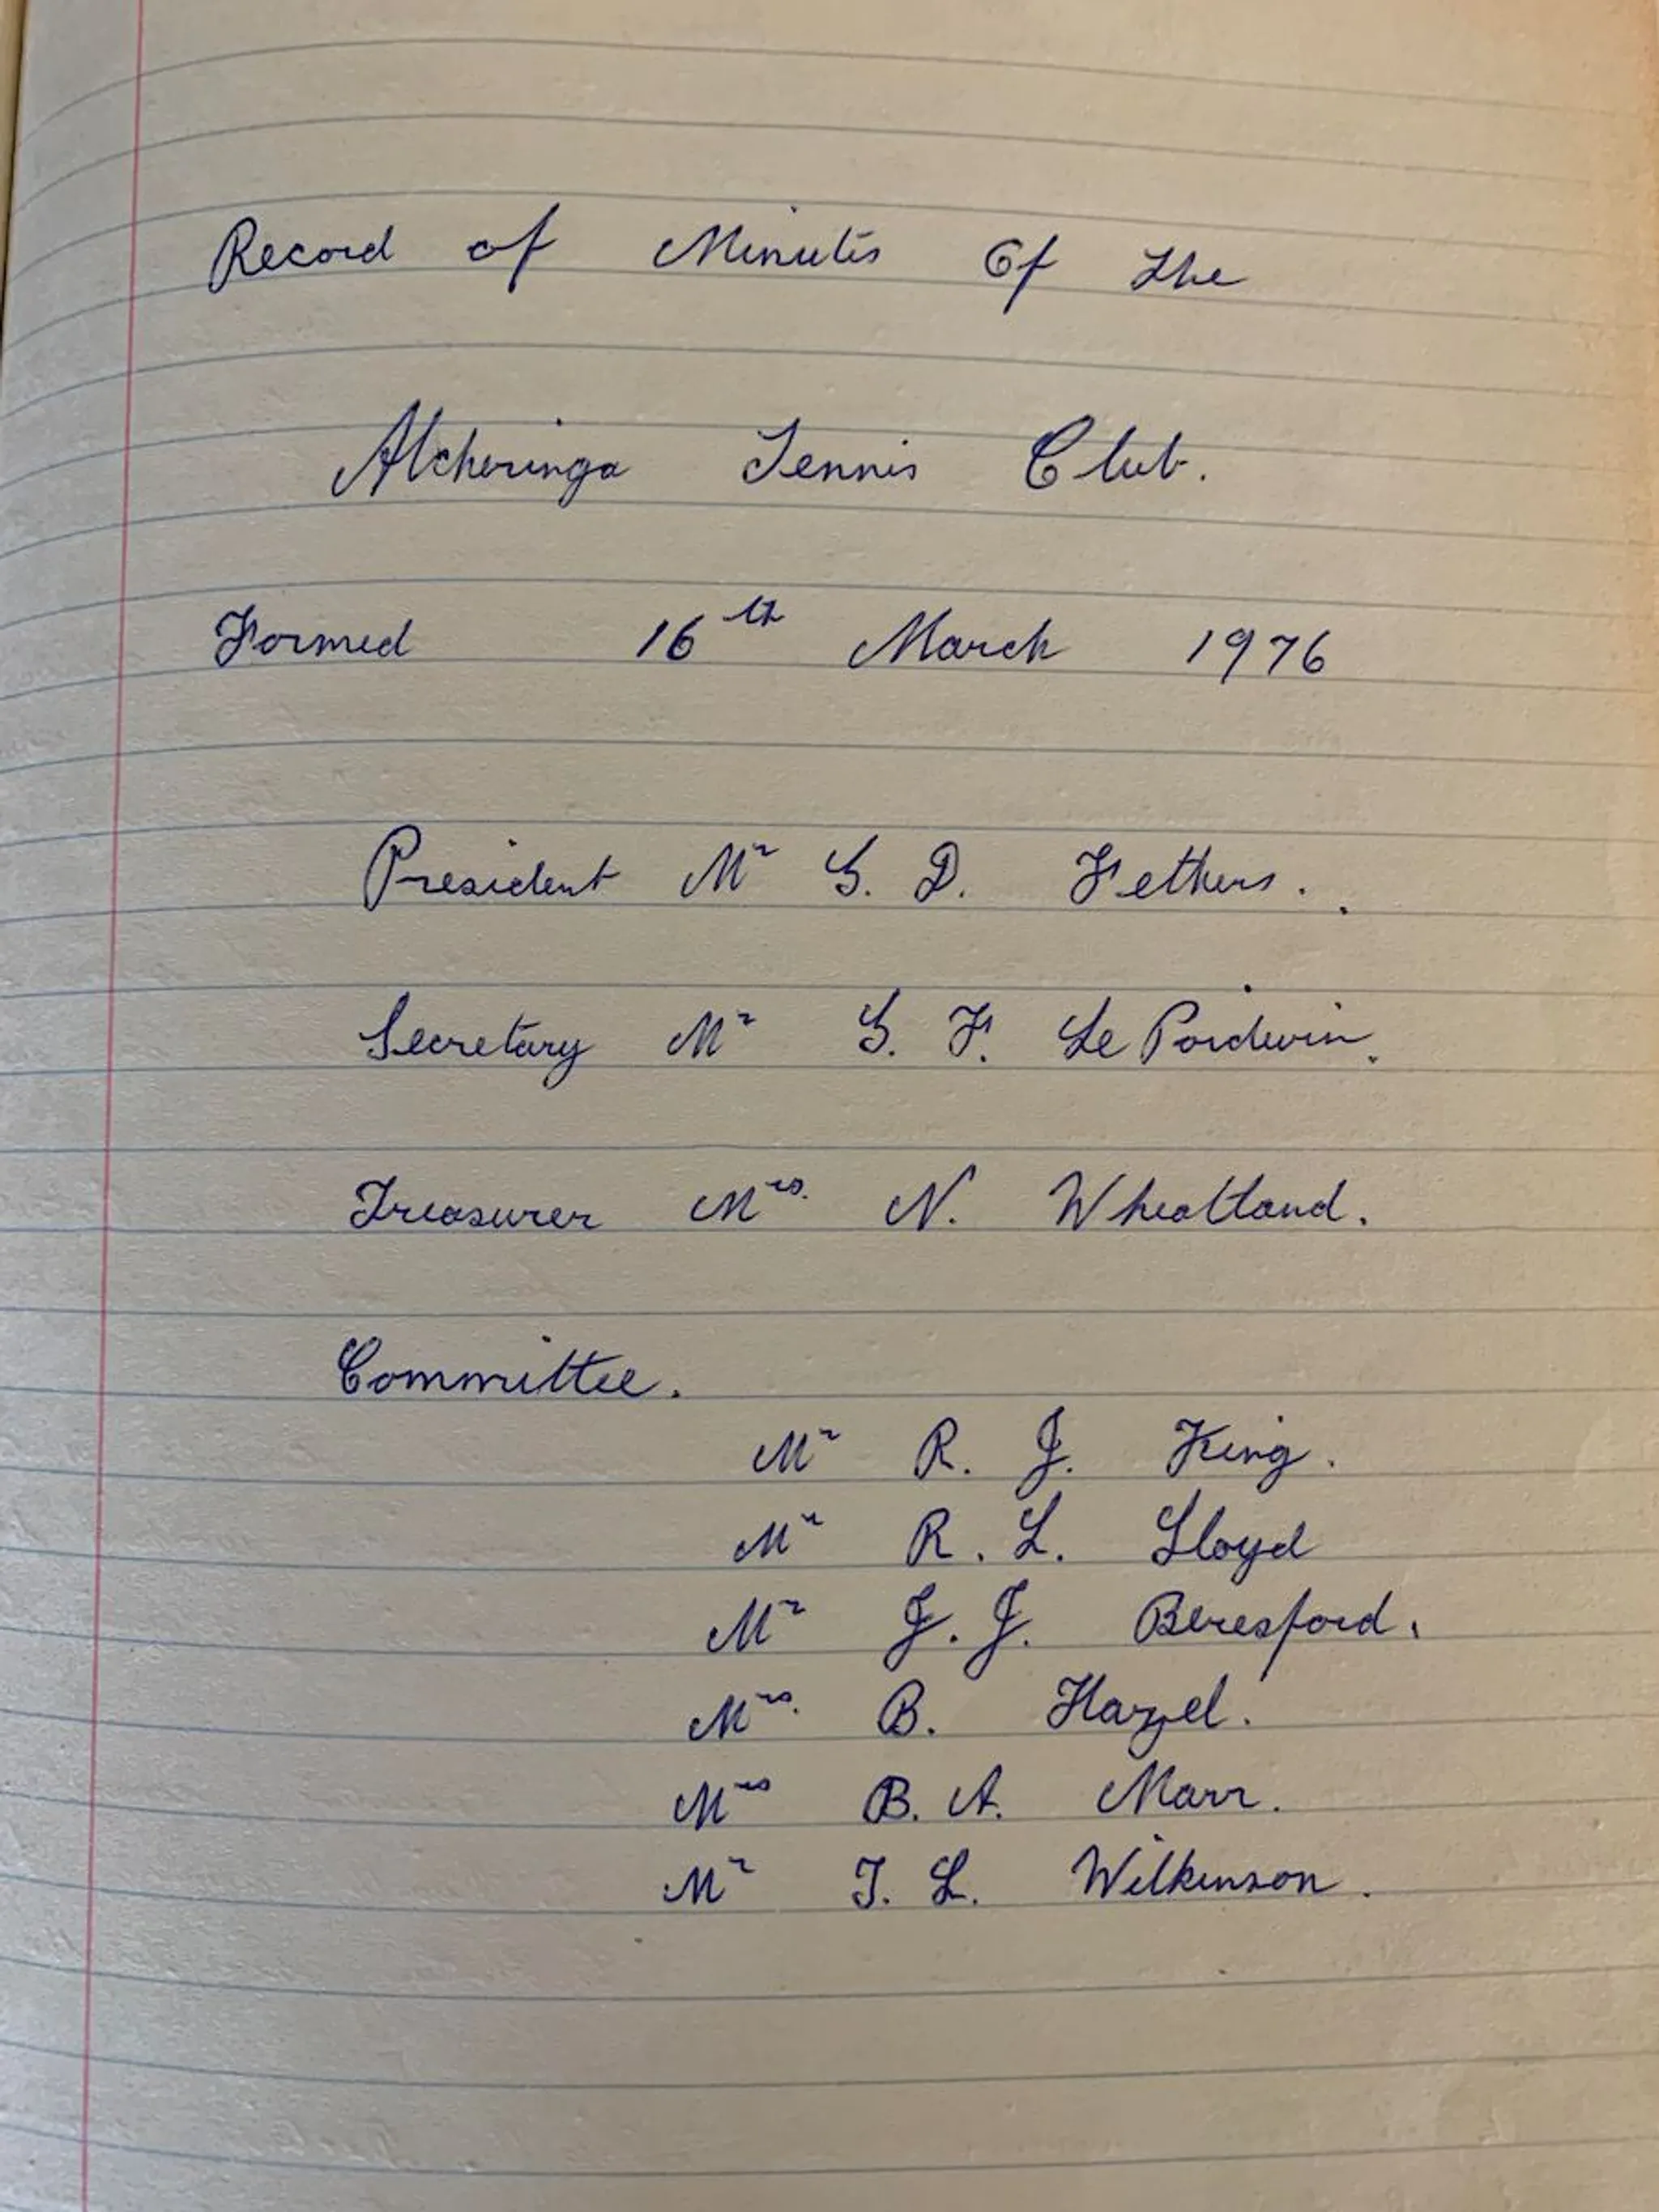 Record of Minutes Of The
Alcheringa Tennis Club.
Formed 16th March 1976
President Mr G. D. Fethers.
Secretary Mr G. F. Le Poidevin.
Treasurer Mrs. N. Wheatland.
Committee.
Mr R. J. King.
Mr R. L. Lloyd
Mr J. J. Beresford.
Mrs. B. Hazel.
Mrs B. A. Marr.
Mr T. L. Wilkinson.